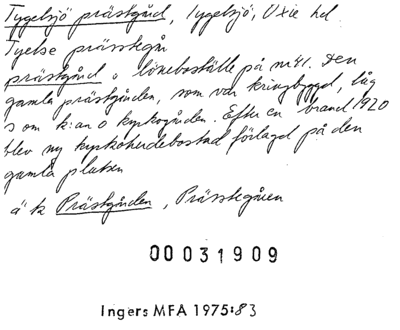 Tygelsjö prästgård, Tygelsjö, Oxie hd
Tyelse prässtegå
prästgård o löneboställe på nr 41. Den
gamla prästgården, som var kringbyggd, låg
s om k:an o kyrkogården. Efter en brand 1920
blev ny kyrkoherdebostad förlagd på den
gamla platsen
ä k Prästgården, Prässtegåen
00031909
Ingers MFA 1975:83